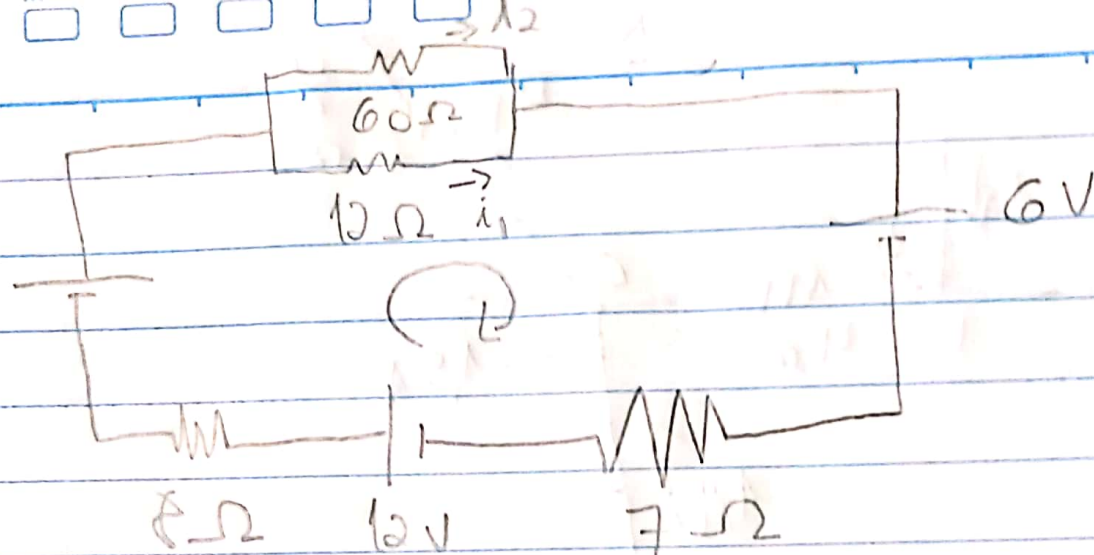 i₂
60Ω
12Ω i₁
6V
8Ω 12V 7Ω